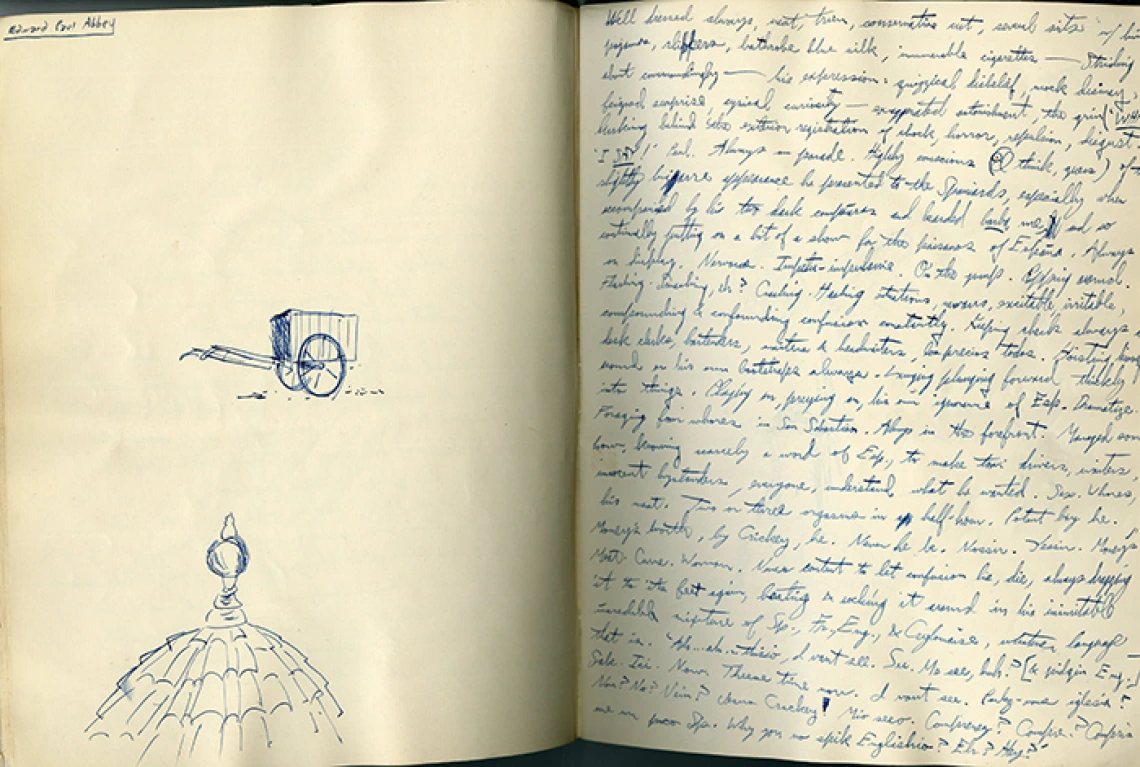 Edward Paul Abbey
Well dressed always, neat, trim, conservative cut, several suits w/ him
pajamas, slippers, bathrobe blue silk, innumerable cigarettes — Striding
about commandingly — his expression: quizzical disbelief, mock dismay,
feigned surprise, cynical curiosity — exaggerated astonishment, the grin
lurking behind the exterior registration of shock, horror, repulsion, disgust.
"I say!" Paul. Always on parade. Highly conscious (I think, guess) of
slightly bizarre appearance he presented to the Spaniards, especially when
accompanied by his two dark compares and bearded me, and so
continually putting on a bit of a show for the paisanos of España. Always
on display. Nervous. impulsive. On the jump. around.
eh? nervous, excitable, irritable,
compounding & confounding confusion constantly. Keeping always
desk clerks, bartenders, waiters & headwaiters, todos. Hoisting
around on his own bootstraps always. Lunging plunging forward thickly
into things. Playing on, preying on, his own ignorance of Esp. Dramatize.
Foraging for whores in San Sebastian. Always in the forefront. Managed some
how, knowing scarcely a word of Esp., to make taxi drivers, waiters,
innocent bystanders, everyone, understand what he wanted. Sex. Whores,
his meat. Two or three orgasms in half-hour. Potent boy he.
Money's worth, by Crickey, he. Never he be. Nossir. Yessir. Money's
Meat. Carne. Women. Never content to let confusion lie, die, always dragging
it to its feet again, beating & it around in his inimitable
incredible mixture of Sp., Fr., Eng., & Ceylonaise, whatever language
that is. "Ah..ah..thisio, I want see. See. Me see, huh? [& pidgin Eng.]
Now. Theese time now. I want see. iglesia?
Non? No? Crickey! Mio seeo. Comprenez? Compre.?
me en poco Sp. Why you no spik Englishio? Eh? Hey?"